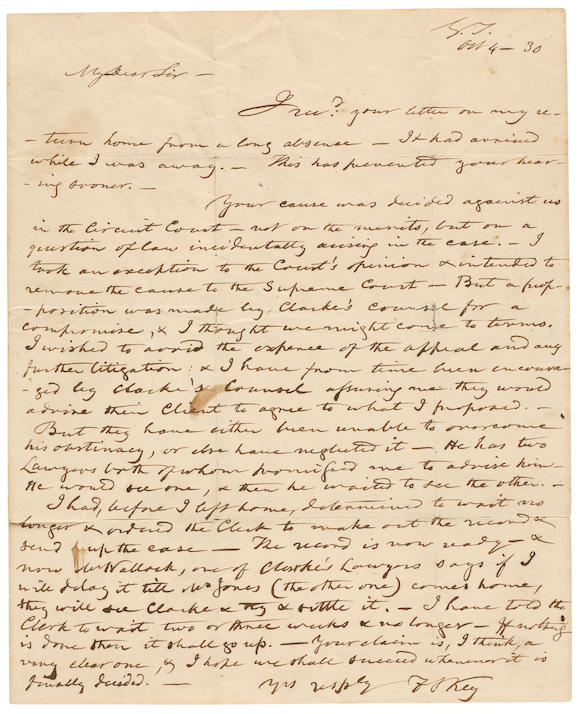 G. T.
Oct 4 - 30
My Dear Sir -
I recd. your letter on my re-
-turn home from a long absense - It had arrived
while I was away. - This has prevented your hear-
-ing sooner. -
Your cause was decided against us
in the Circuit Court - not on the merits, but on a
question of law incidentally arising in the case. - I
took an exception to the Court's opinion & intended to
remove the cause to the Supreme Court - But a prop-
-position was made by Clarke's counsel for a
compromise, & I thought we might come to terms.
I wished to avoid the expence of the appeal and any
further litigation: & I have from time been encoura-
-ged by Clarke's Counsel assuring me they would
advise their Client to agree to what I proposed. -
But they have either been unable to overcome
his obstinacy, or else have neglected it - He has two
Lawyers both of whom promised me to advise him -
He would see one, & then he waited to see the other. -
I had, before I left home, determined to wait no
longer & ordered the Clerk to make out the record &
send up the case - The record is now ready - &
now Mr Hallock, one of Clarke's Lawyers says if I
will delay it till Mr Jones (the other one) comes home,
they will see Clarke & try & settle it. - I have told the
Clerk to wait two or three weeks & no longer - If nothing
is done then it shall go up. - Your claim is, I think, a
very clear one, & I hope we shall succeed whenever it is
finally decided. -
Yrs resply F S Key